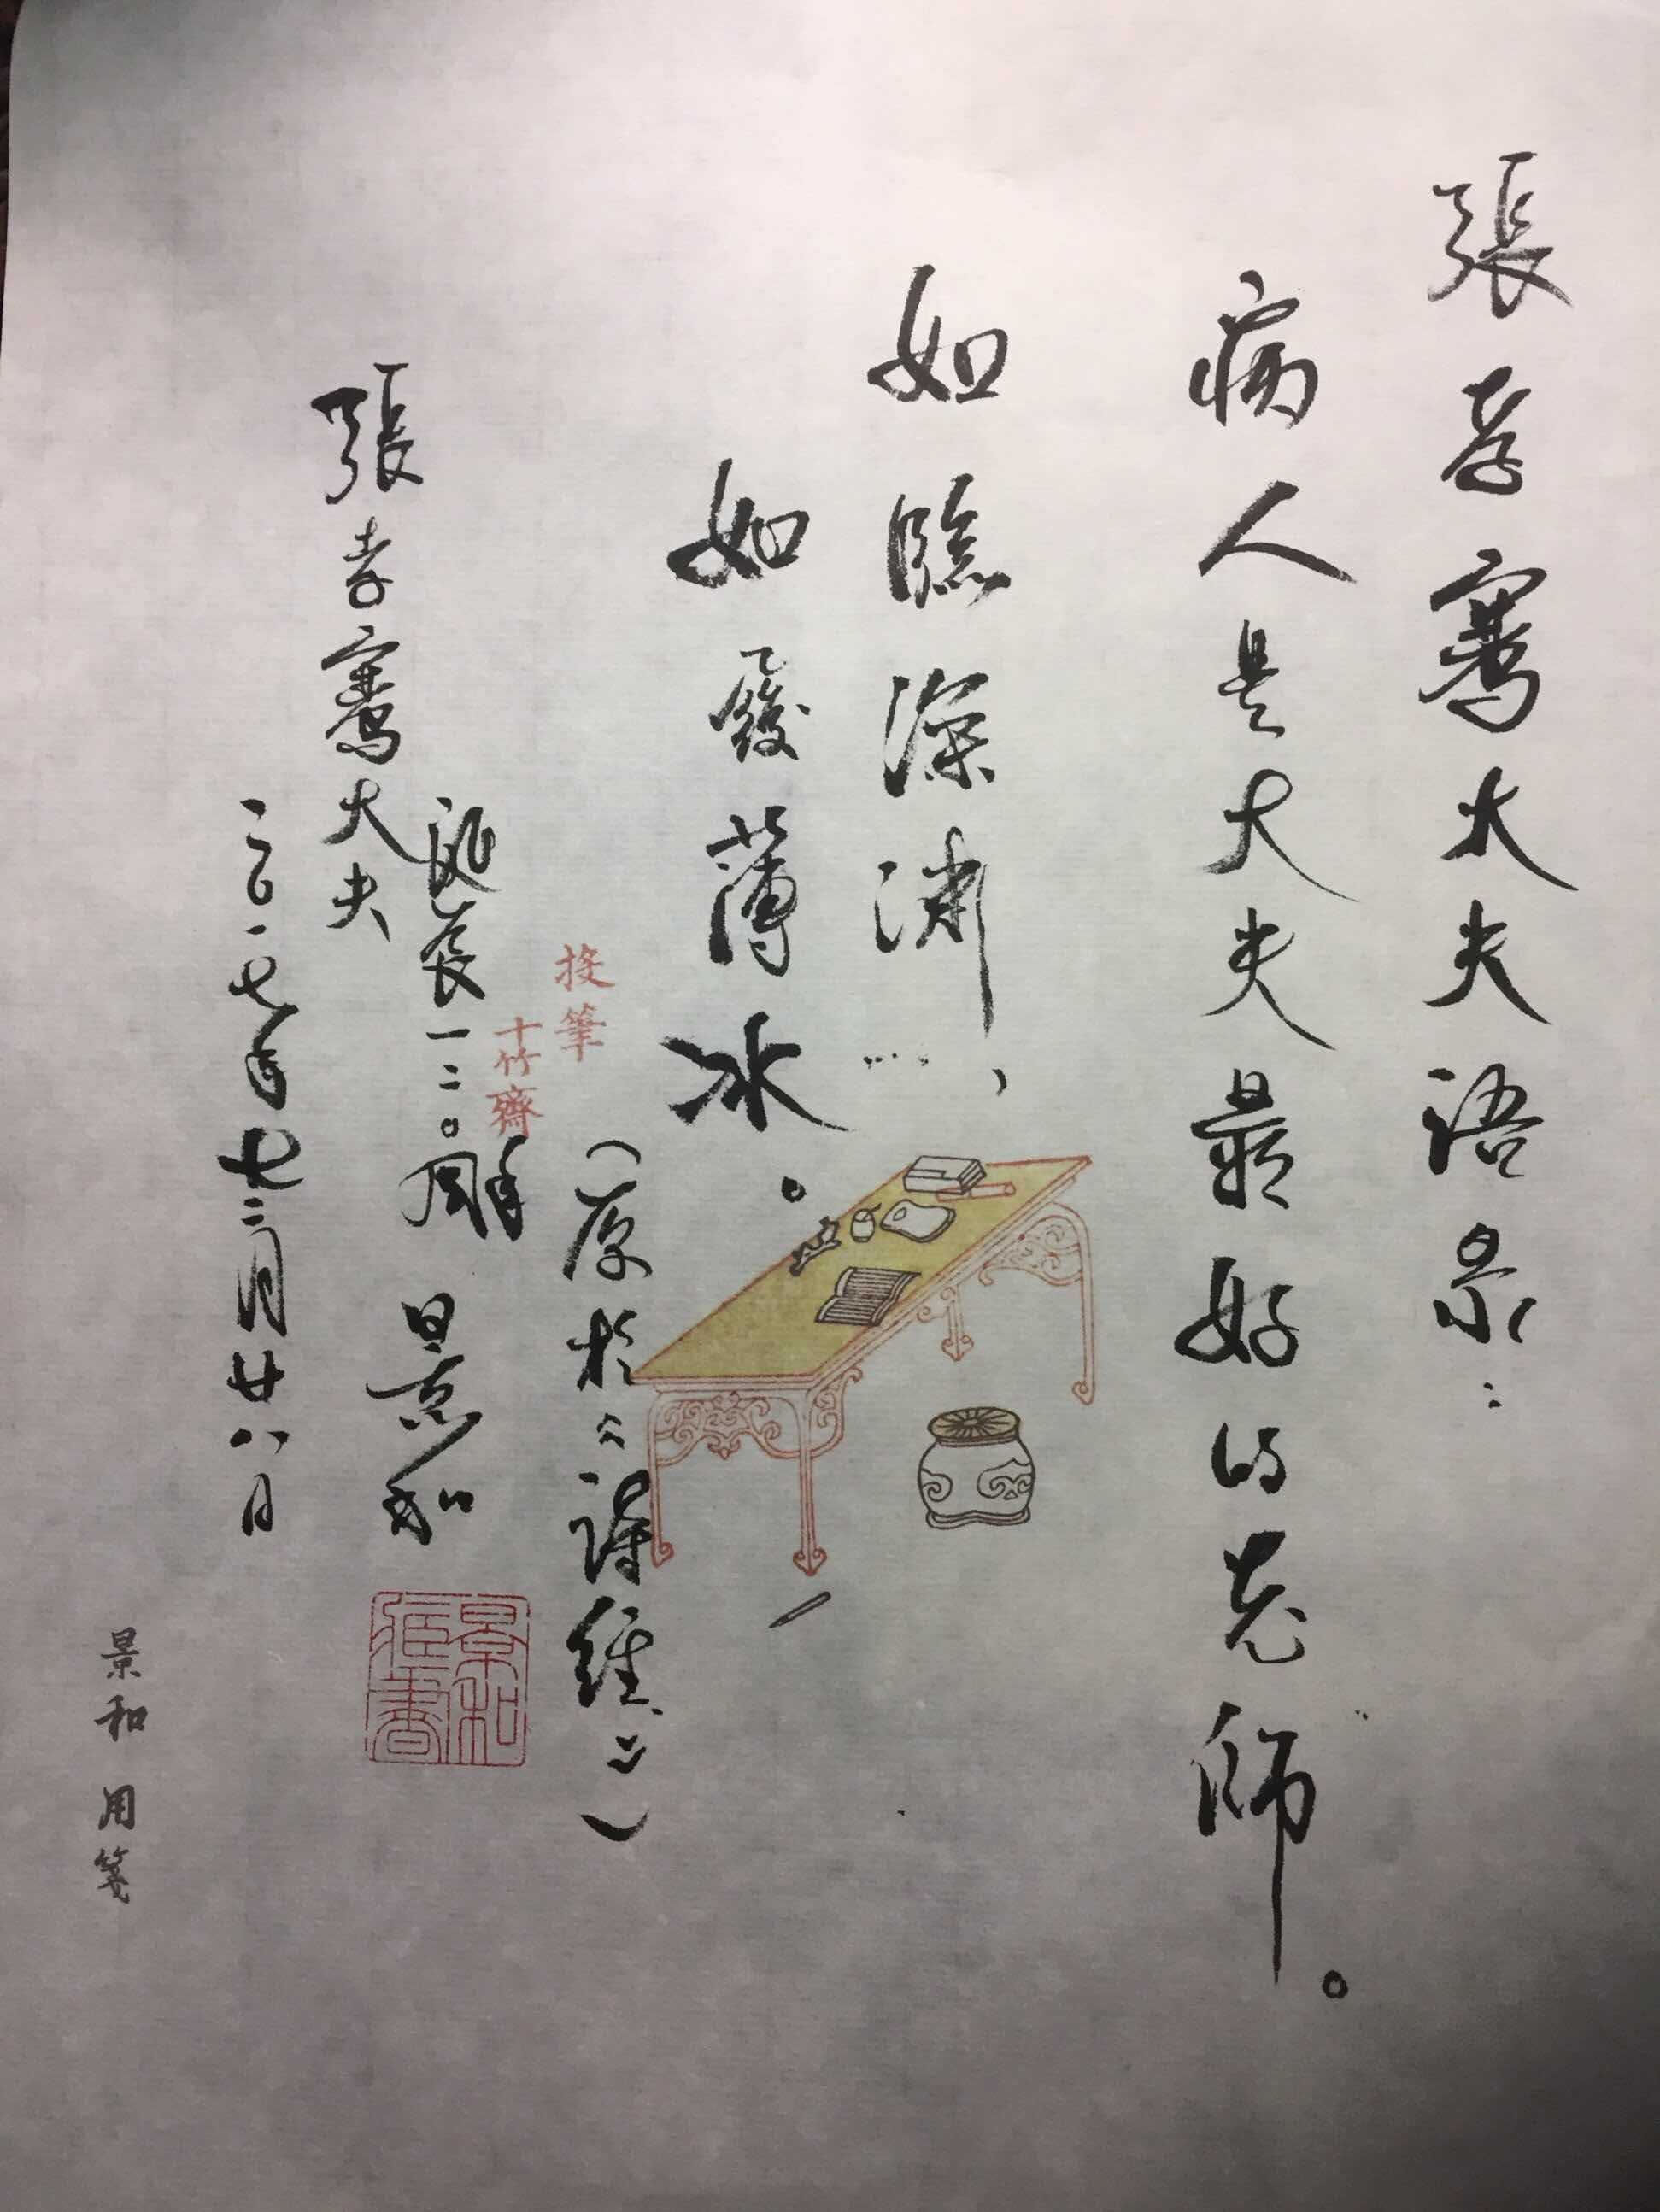 張孝騫大夫语录：
病人是大夫最好的老师。
如臨深渊，
如履薄冰。
（原於《诗经》）
投筆
十竹齋
張孝騫大夫
诞辰一二〇周年 景和
二〇一七年七二月廿八日
景和
景和 用箋